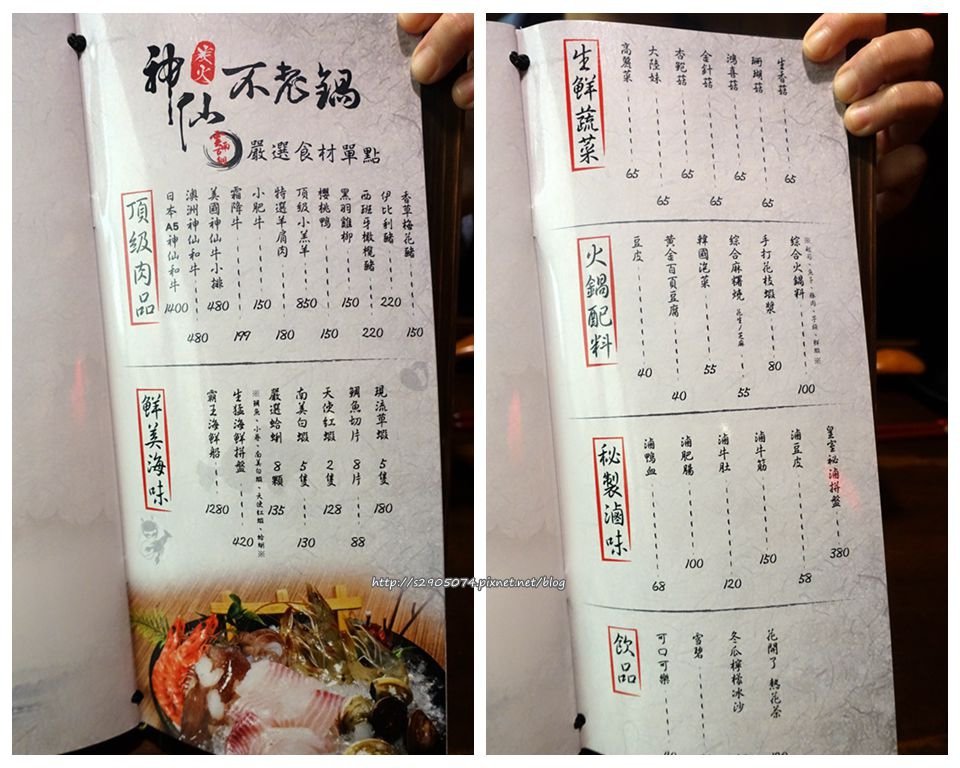 炭火
神仙不老鍋
嚴選食材單點
頂級肉品
日本A5神仙和牛 1400
澳洲神仙和牛 480
美國神仙牛小排 480
霜降牛 199
小肥牛 150
特選羊肩肉 180
頂級小羔羊 850
櫻桃鴨 150
黑羽雞柳 150
西班牙橄欖豬 220
伊比利豬 220
香草梅花豬 150
鮮美海味
霸王海鮮船 1280
生猛海鮮拼盤 420
※鯛魚、小卷、南美白蝦、天使紅蝦、蛤蜊※
嚴選蛤蜊 8顆 135
南美白蝦 5隻 130
天使紅蝦 2隻 128
鯛魚切片 8片 88
現流草蝦 5隻 180
http://s2905074.pixnet.net/blog
生鮮蔬菜
高麗菜 65
大陸妹 65
杏鮑菇 65
金針菇 65
鴻喜菇 65
珊瑚菇 65
生香菇 65
火鍋配料
豆皮 40
黃金百頁豆腐 40
韓國泡菜 55
綜合麻糬燒 花生/芝麻 55
手打花枝蝦漿 80
綜合火鍋料 100
秘製滷味
滷鴨血 68
滷肥腸 100
滷牛肚 120
滷牛筋 150
滷豆皮 58
皇室祕滷拼盤 380
飲品
可口可樂
雪碧
冬瓜檸檬冰沙
花開了 熱花茶